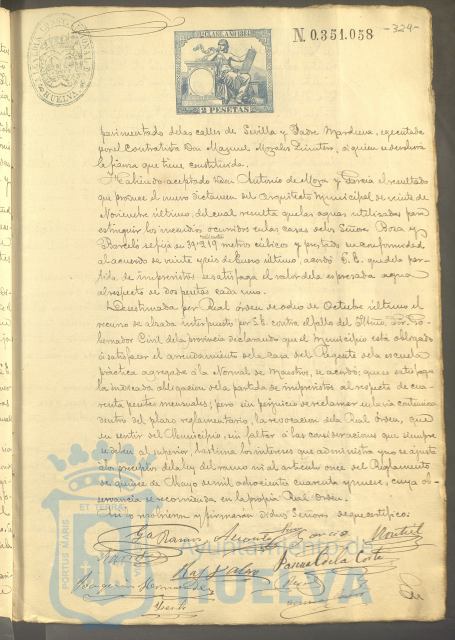 N. 0.351.058
-324-
CLASE
2 PESETAS
HUELVA
pavimentado de las calles de Sevilla y Padre Marchena, ejecutado
por el Contratista Don Manuel Morales, á quien se devolverá
la fianza que tiene constituida.
Habiendo aceptado Don Antonio de Mora y García el resultado
que produce el nuevo dictamen del Arquitecto Municipal de veinte de
Noviembre último, del cual resulta que las aguas utilizadas para
extinguir los incendios ocurridos en las casas de los Señores Boza y
Barceló se fija en 39'219 metros cúbicos y prestado su conformidad
al acuerdo de veinte y seis de Enero último, acordó S.E. que de la par-
tida de imprevistos se satisfaga el valor de la expresada agua
al respecto de dos pesetas cada uno.
Desestimado por Real órden de ocho de Octubre último el
recurso de alzada interpuesto por S.E. contra el fallo del Iltmo. Sor. Go-
bernador Civil de la provincia declarando que el Municipio está obligado
á satisfacer el arrendamiento de la casa del Regente de la escuela
práctica agregada á la Normal de Maestros, se acordó; que se satisfaga
la indicada obligacion de la partida de imprevistos al respecto de cua-
renta pesetas mensuales; pero sin perjuicio de reclamar en la vía contenciosa
dentro del plazo reglamentario, la revocacion de la Real órden, que
en sentir del Municipio, sin faltar á las consideraciones que siempre
al superior, lastima los intereses que administra y no se ajusta
á los preceptos de la ley del ramo ni al artículo once del Reglamento
de quince de Mayo de mil ochocientos cuarenta y nueve, cuya ob-
servancia se recomienda en la propia Real órden.
Así se resolvieron y firmarán dichos Señores de que certifico:
García
Montiel
Rafael
Pascual de la Corte
Joaquin Hernandez
PORTUS MARIS
ET TERRAE
Ayuntamiento de
HUELVA